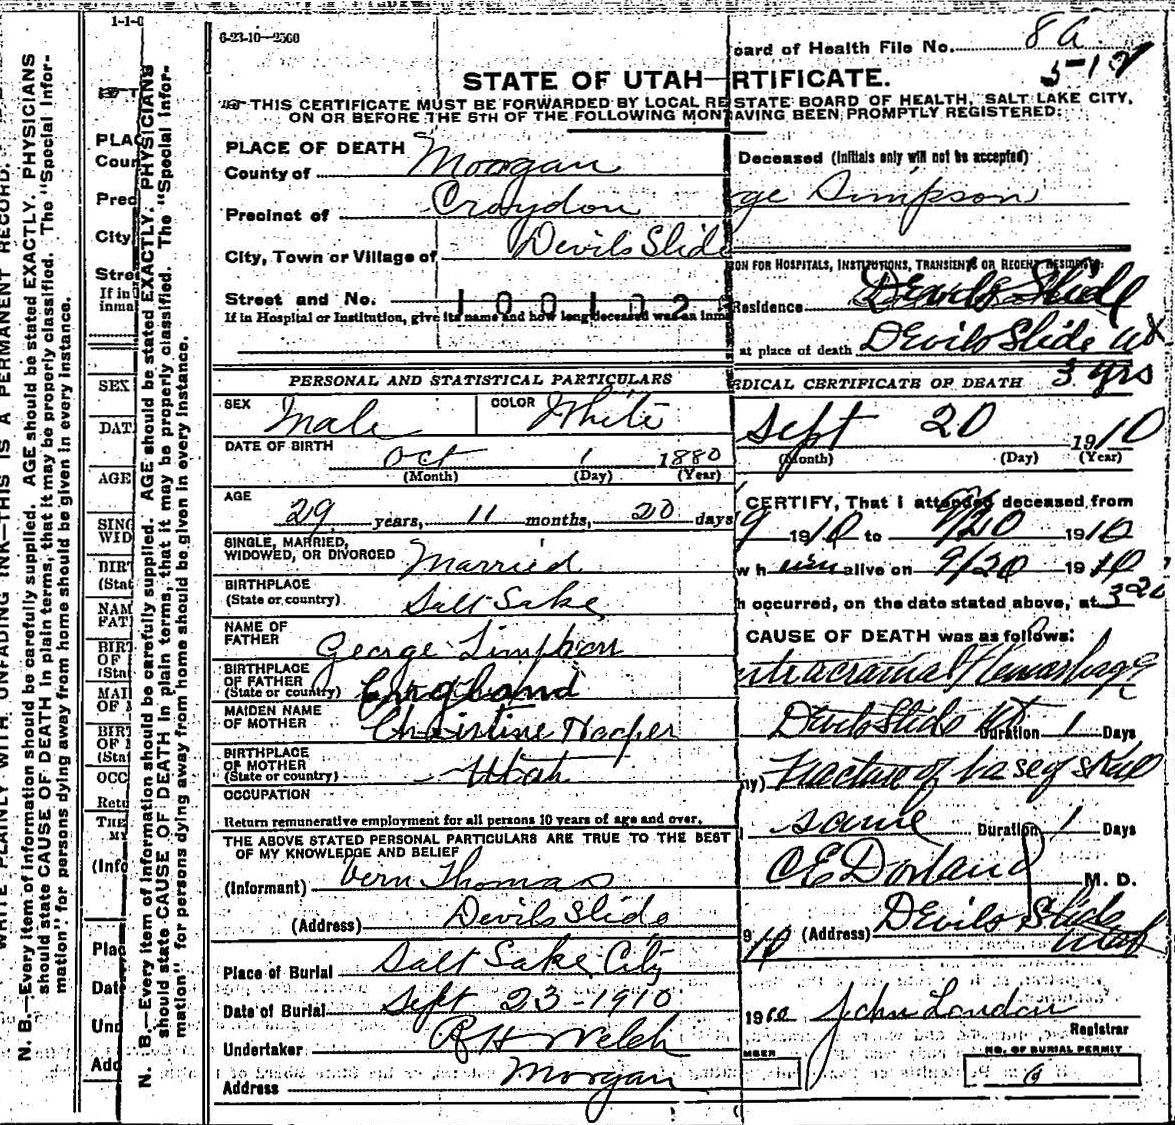 1-1-0
6-23-10—2500
oard of Health File No. 8a
5-12
STATE OF UTAH—RTIFICATE.
THIS CERTIFICATE MUST BE FORWARDED BY LOCAL RE STATE BOARD OF HEALTH, SALT LAKE CITY,
ON OR BEFORE THE 5TH OF THE FOLLOWING MON AVING BEEN PROMPTLY REGISTERED:
PLACE OF DEATH
County of Morgan
Precinct of Croydon
City, Town or Village of Devils Slide
Street and No. 100102
If in Hospital or Institution, give its name and how long deceased was an inm
PERSONAL AND STATISTICAL PARTICULARS
SEX Male COLOR White
DATE OF BIRTH Oct 1 1880
(Month) (Day) (Year)
AGE
29 years, 11 months, 20 days
SINGLE, MARRIED,
WIDOWED, OR DIVORCED Married
BIRTHPLACE
(State or country) Salt Lake
NAME OF
FATHER George Simpson
BIRTHPLACE
OF FATHER
(State or country) England
MAIDEN NAME
OF MOTHER Christine Hooper
BIRTHPLACE
OF MOTHER
(State or country) Utah
OCCUPATION
Return remunerative employment for all persons 10 years of age and over.
THE ABOVE STATED PERSONAL PARTICULARS ARE TRUE TO THE BEST
OF MY KNOWLEDGE AND BELIEF
(Informant) Vern Thomas
(Address) Devils Slide
Place of Burial Salt Lake City
Date of Burial Sept 23-1910
Undertaker R H Welch
Address Morgan
Deceased (Initials only will not be accepted)
ge Simpson
ION FOR HOSPITALS, INSTITUTIONS, TRANSIENTS OR RECENT RESIDENTS:
Residence Devils Slide
at place of death Devils Slide Ut
3 yrs
EDICAL CERTIFICATE OF DEATH
Sept 20 1910
(Month) (Day) (Year)
CERTIFY, That I attended deceased from
9 1910 to 9/20 1910
w h im alive on 9/20 1910
h occurred, on the date stated above, at 3 20
CAUSE OF DEATH was as follows:
ntracranial Hemorrhage
Devils Slide Ut Duration 1 Days
ry) Fracture of base of skull
same Duration 1 Days
C E Dorland M. D.
9 10 (Address) Devils Slide
Utah
1910 John London
Registrar
MBER
NO. OF BURIAL PERMIT
9
WRITE PLAINLY WITH UNFADING INK—THIS IS A PERMANENT RECORD.
N. B.—Every item of information should be carefully supplied. AGE should be stated EXACTLY. PHYSICIANS
should state CAUSE OF DEATH in plain terms, that it may be properly classified. The "Special Infor-
mation" for persons dying away from home should be given in every instance.
PLAC
Coun
Pred
City
Stre
If in
inma
SEX
DAT
AGE
SING
WID
BIRT
(Stat
NAM
FAT
BIRT
OF
(Stat
MAI
OF M
BIRT
OF M
(Stat
OCC
Retu
THE
MY
(Info
Plac
Date
Und
Add
N. B.—Every item of information should be carefully supplied. AGE should be stated EXACTLY. PHYSICIANS
should state CAUSE OF DEATH in plain terms, that it may be properly classified. The "Special Infor-
mation" for persons dying away from home should be given in every instance.